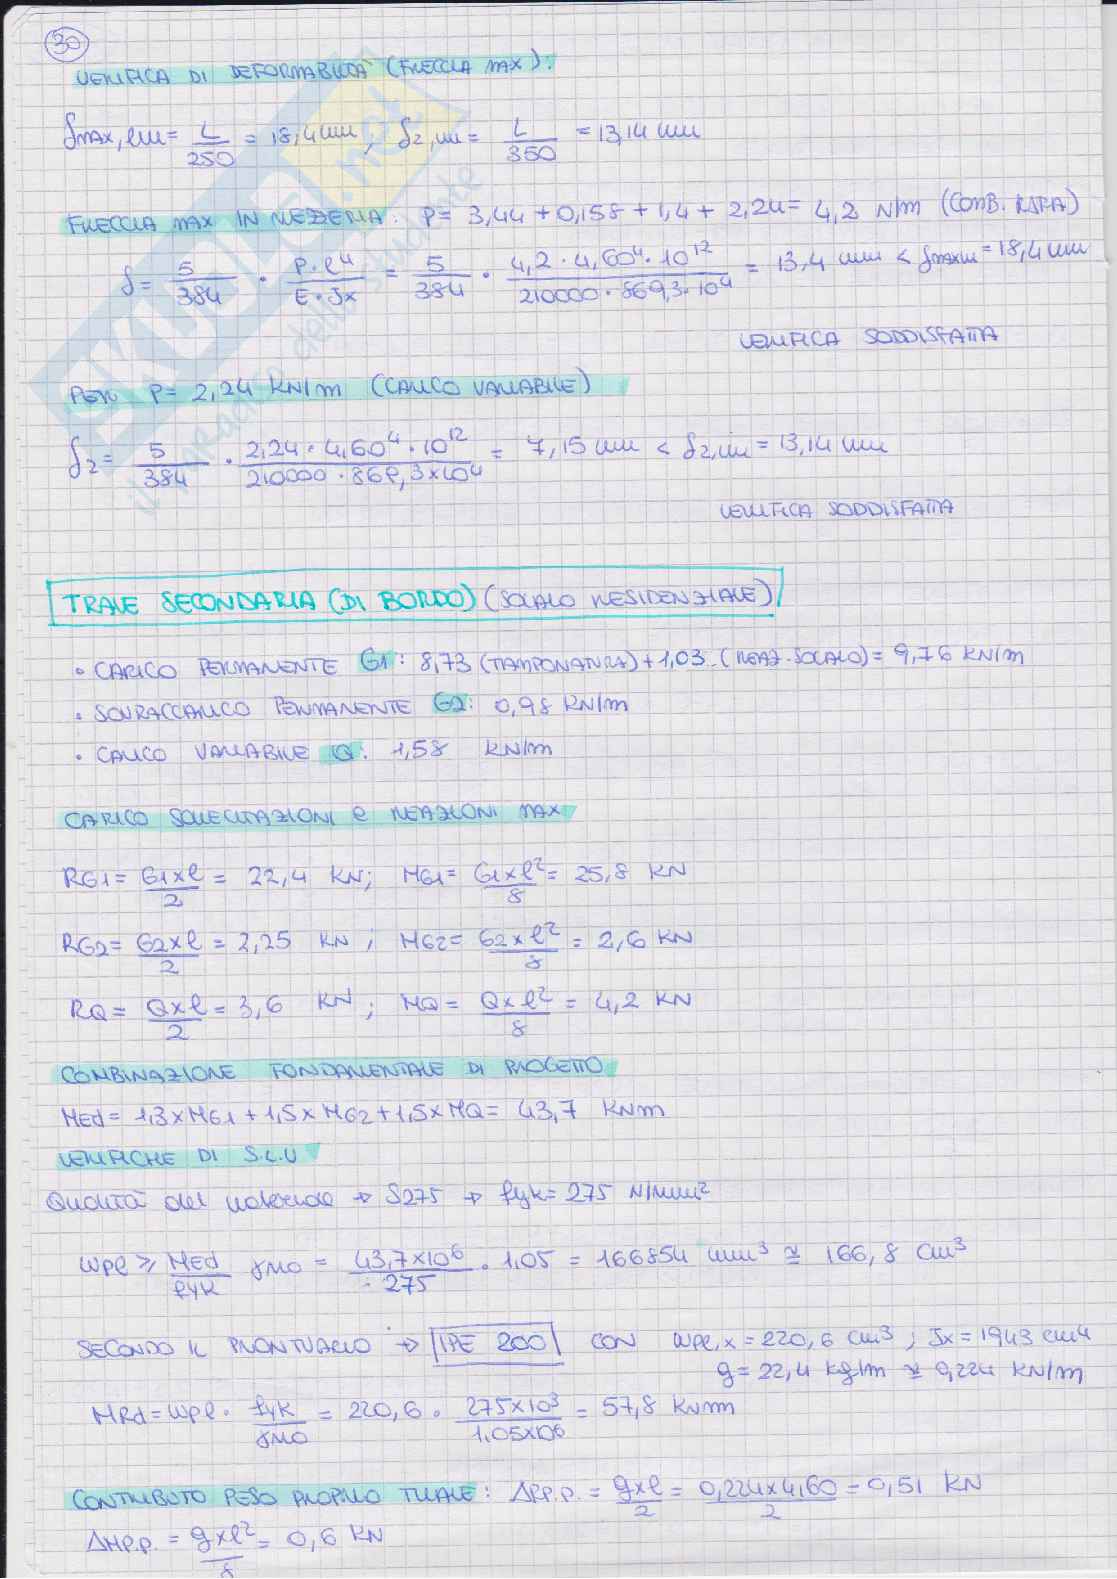 30
VERIFICA DI DEFORMABILITÀ (FRECCIA MAX):
δmax,lim = L/250 = 18,4 mm, δ2,lim = L/350 = 13,14 mm
FRECCIA MAX IN MEZZERIA: P= 3,44 + 0,158 + 1,4 + 2,24 = 4,2 N/m (COMB. RARA)
δ = 5/384 · P·l⁴/E·Jx = 5/384 · 4,2 · 4,60⁴ · 10¹²/210000 · 869,3·10⁴ = 13,4 mm < δmaxlim = 18,4 mm
VERIFICA SODDISFATTA
PER P= 2,24 KN/m (CARICO VARIABILE)
δ2 = 5/384 · 2,24 · 4,60⁴ · 10¹²/210000 · 869,3×10⁴ = 7,15 mm < δ2,lim = 13,14 mm
VERIFICA SODDISFATTA
TRAVE SECONDARIA (DI BORDO) (SOLAIO RESIDENZIALE)
• CARICO PERMANENTE G1: 8,73 (TAMPONATURA) + 1,03 (REAZ. SOLAIO) = 9,76 KN/m
• SOVRACCARICO PERMANENTE G2: 0,98 KN/m
• CARICO VARIABILE Q: 1,58 KN/m
CARICO SOLLECITAZIONI e REAZIONI MAX
RG1 = G1×l/2 = 22,4 KN; MG1 = G1×l²/8 = 25,8 KN
RG2 = G2×l/2 = 2,25 KN; MG2 = G2×l²/8 = 2,6 KN
RQ = Q×l/2 = 3,6 KN; MQ = Q×l²/8 = 4,2 KN
COMBINAZIONE FONDAMENTALE DI PROGETTO
MEd = 1,3×MG1 + 1,5×MG2 + 1,5×MQ = 43,7 KNm
VERIFICHE DI S.L.U
Qualità del materiale → S275 → fyk = 275 N/mm²
Wpl ≥ MEd/fyk γM0 = 43,7×10⁶/275 · 1,05 = 166854 mm³ ≅ 166,8 cm³
SECONDO IL PRONTUARIO → IPE 200 CON Wpl,x = 220,6 cm³; Jx = 1943 cm4
g = 22,4 kg/m ≅ 0,224 KN/m
MRd = Wpl · fyk/γM0 = 220,6 · 275×10³/1,05×10⁶ = 57,8 KNm
CONTRIBUTO PESO PROPRIO TRAVE: ΔRp.p. = g×l/2 = 0,224×4,60/2 = 0,51 KN
ΔMp.p. = g×l²/8 = 0,6 KN